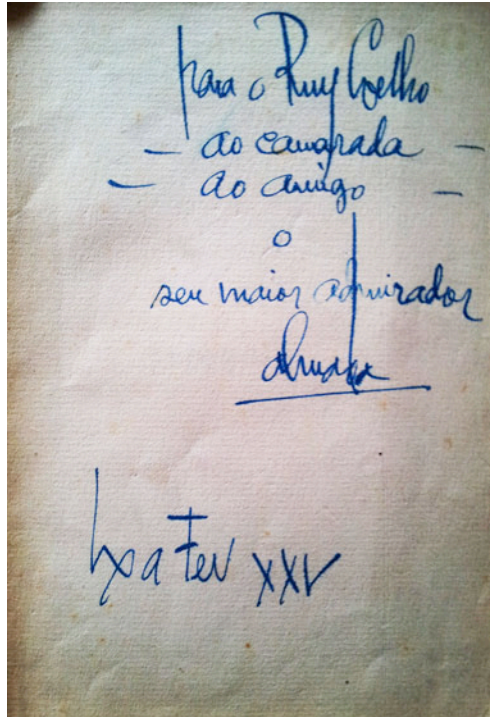 para o Ruy Coelho
— ao camarada —
— ao amigo —
o
seu maior admirador
almada
Lxa Fev XXV